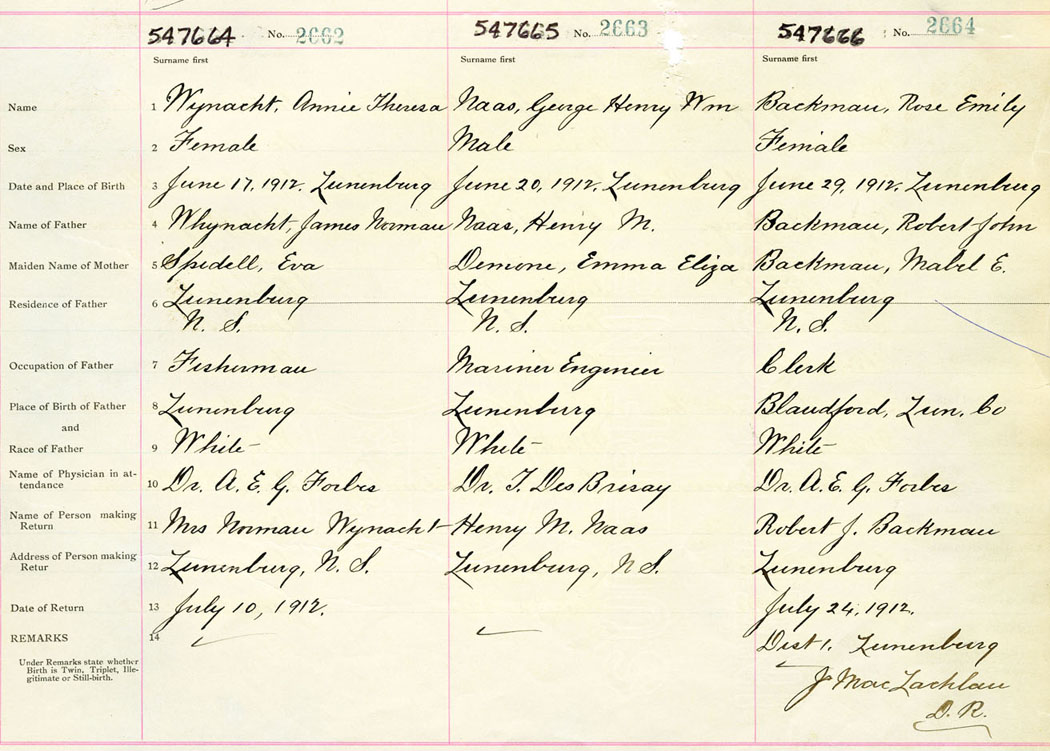 547664 No. 2662 547665 No. 2663 547666 No. 2664
Surname first Surname first Surname first
Name 1 Wynacht, Annie Theresa Naas, George Henry Wm Backman, Rose Emily
Sex 2 Female Male Female
Date and Place of Birth 3 June 17, 1912. Lunenburg June 20, 1912. Lunenburg June 29, 1912. Lunenburg
Name of Father 4 Whynacht, James Norman Naas, Henry M. Backman, Robert John
Maiden Name of Mother 5 Spidell, Eva Demone, Emma Eliza Backman, Mabel E.
Residence of Father 6 Lunenburg Lunenburg Lunenburg
N. S. N. S. N. S.
Occupation of Father 7 Fisherman Mariner Engineer Clerk
Place of Birth of Father 8 Lunenburg Lunenburg Blandford, Lun. Co
and
Race of Father 9 White White White
Name of Physician in at-
tendance 10 Dr. A. E. G. Forbes Dr. T. DesBrisay Dr. A. E. G. Forbes
Name of Person making
Return 11 Mrs Norman Wynacht Henry M. Naas Robert J. Backman
Address of Person making
Retur 12 Lunenburg, N. S. Lunenburg, N S. Lunenburg
Date of Return 13 July 10, 1912. July 24, 1912.
REMARKS 14 Dist 1. Lunenburg
Under Remarks state whether
Birth is Twin, Triplet, Ille-
gitimate or Still-birth.
J MacLachlan
D. R.